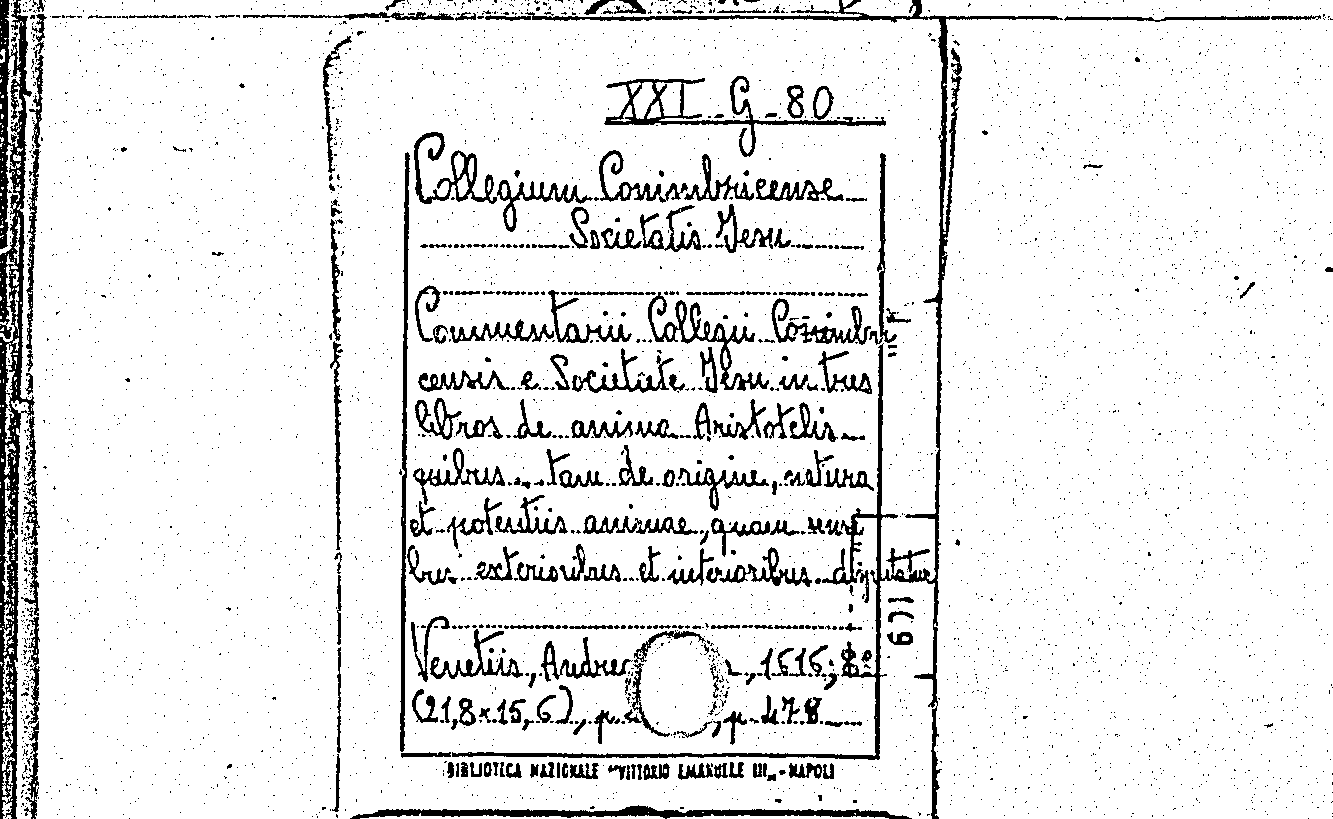 XXI.G.80
Collegium Conimbricense
Societatis Iesu
Commentarii Collegii Conimbri=
censis e Societate Iesu in tres
libros de anima Aristotelis
quibus.. tam de origine, natura
et potentiis animae, quam sensi=
bus exterioribus et interioribus disputatur
Venetiis, Andrea , 1616; 8º
(21,8×15,6), p. , p. 478
BIBLIOTECA NAZIONALE "VITTORIO EMANUELE III„ - NAPOLI